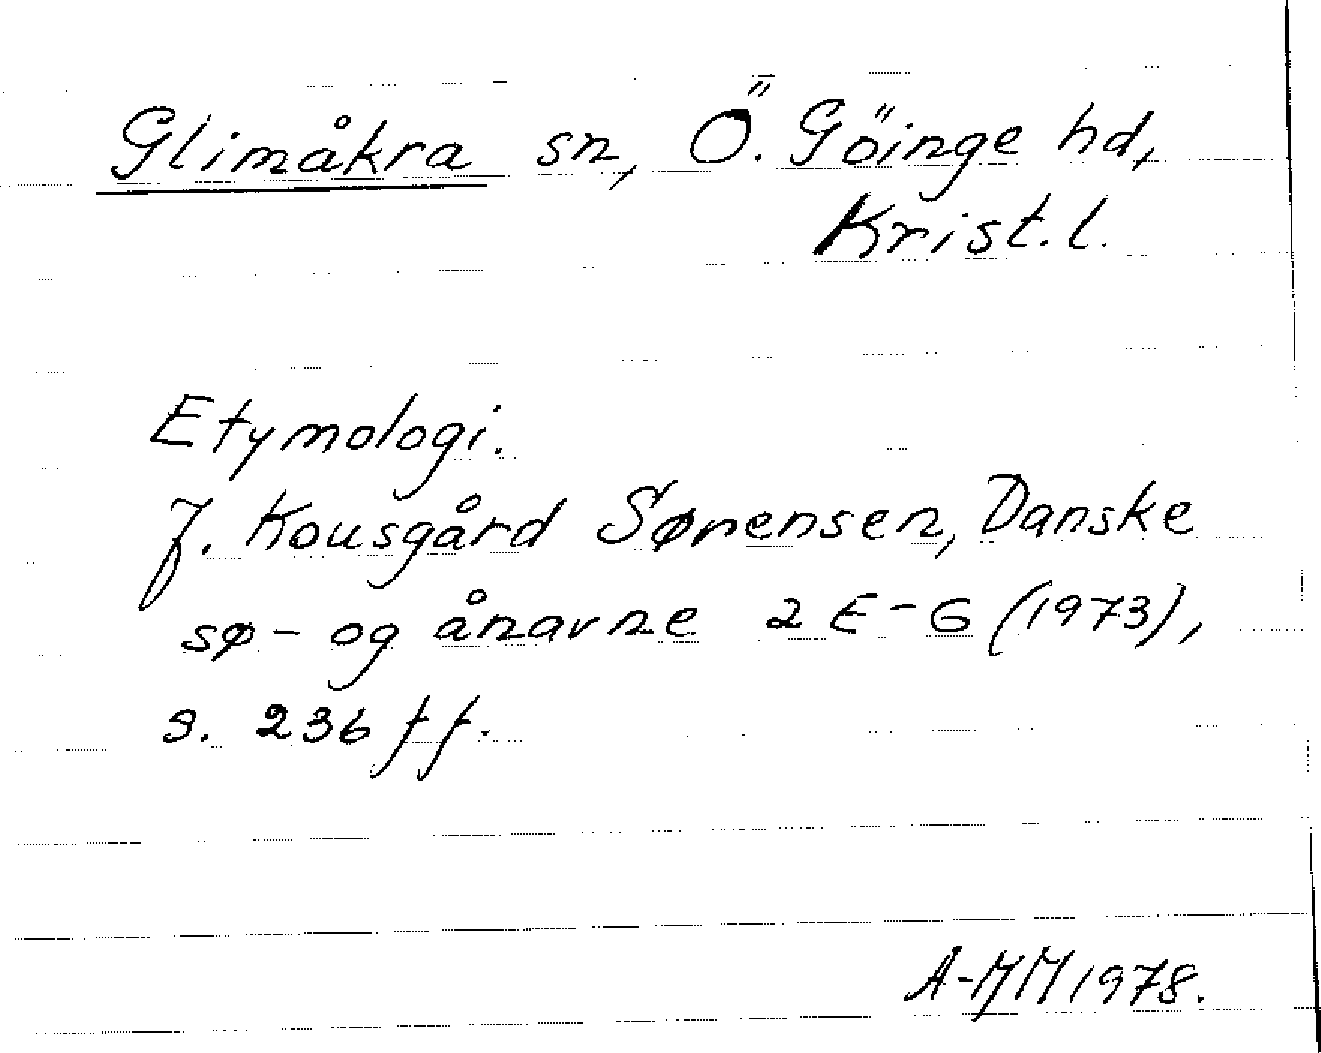 Glimåkra sn, Ö. Göinge hd,
Krist. l.
Etymologi.
J. Kousgård Sørensen, Danske
sø- og ånavne 2 E-G (1973),
s. 236 ff.
A-MM 1978.